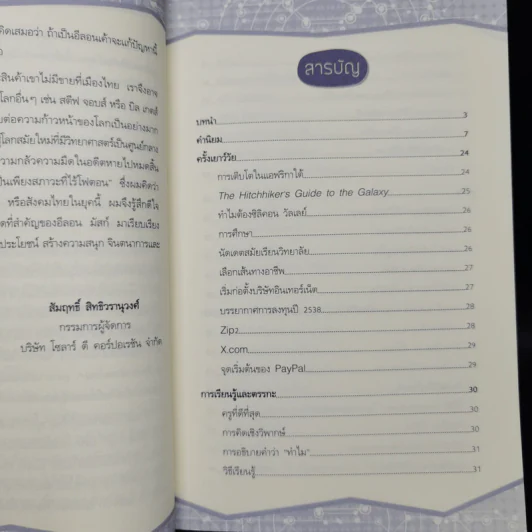 คิดเสมอว่า ถ้าเป็นอีลอนเค้าจะแก้ปัญหานี้
สินค้าเขาไม่มีขายที่เมืองไทย เราจึงอาจ
โลกอื่นๆ เช่น สตีฟ จอบส์ หรือ บิล เกตส์
ต่อความก้าวหน้าของโลกเป็นอย่างมาก
โลกสมัยใหม่ที่มีวิทยาศาสตร์เป็นศูนย์กลาง
ความกลัวความมืดในอดีตหายไปหมดสิ้น
เป็นเพียงสภาวะที่ไร้โฟตอน" ซึ่งผมคิดว่า
หรือสังคมไทยในยุคนี้ ผมจึงรู้สึกดีใจ
ที่สำคัญของอีลอน มัสก์ มาเรียบเรียง
ประโยชน์ สร้างความสนุก จินตนาการและ
สัมฤทธิ์ สิทธิวรานุวงศ์
กรรมการผู้จัดการ
บริษัท โซลาร์ ดี คอร์ปอเรชัน จำกัด
สารบัญ
บทนำ 3
คำนิยม 7
ครั้งเยาว์วัย 24
การเติบโตในแอฟริกาใต้ 24
The Hitchhiker's Guide to the Galaxy 25
ทำไมต้องซิลิคอน วัลเลย์ 26
การศึกษา 26
นัดเดตสมัยเรียนวิทยาลัย 26
เลือกเส้นทางอาชีพ 27
เริ่มก่อตั้งบริษัทอินเทอร์เน็ต 27
บรรยากาศการลงทุนปี 2538 28
Zip2 28
X.com 29
จุดเริ่มต้นของ PayPal 29
การเรียนรู้และตรรกะ 30
ครูที่ดีที่สุด 30
การคิดเชิงวิพากษ์ 30
การอธิบายคำว่า "ทำไม" 31
วิธีเรียนรู้ 31